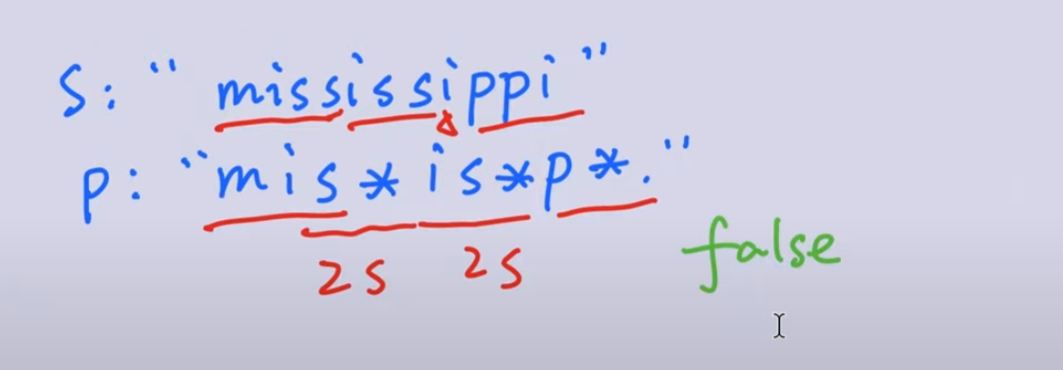 S: "mississippi"
p: "mis*is*p*."
2s 2s
false